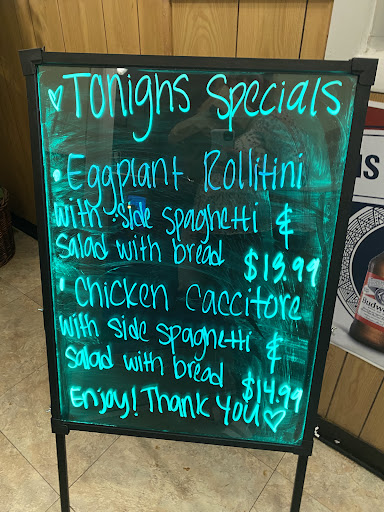 ♡Tonighs Specials
• Eggplant Rollitini
with side spaghetti &
salad with bread $13.99
• Chicken Caccitore
with side spaghetti &
salad with bread $14.99
Enjoy! Thank you♡